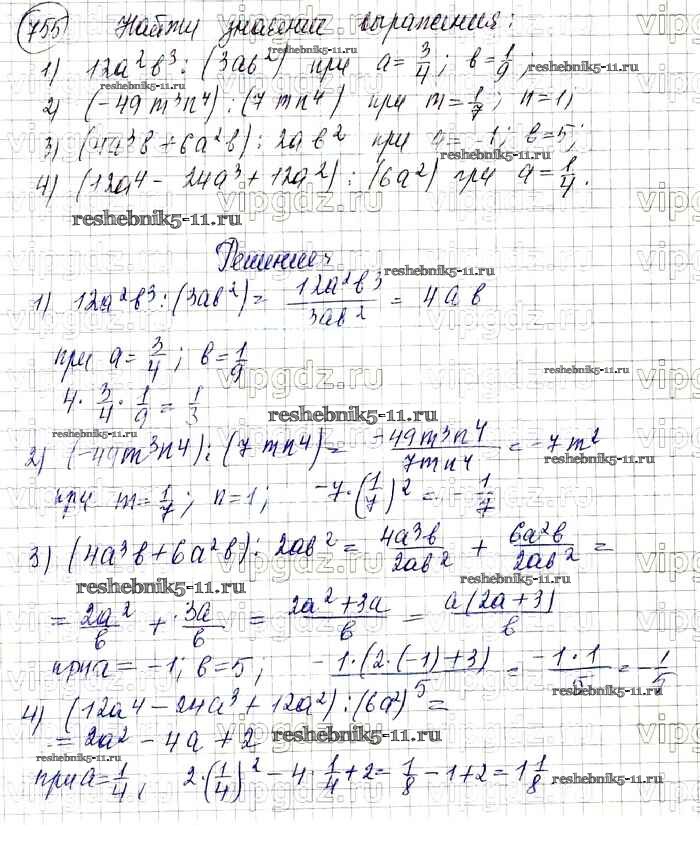 755) Найти значения выражения:
1) 12a²b³ : (3ab²) при a=3/4; b=1/9;
2) (-49m³n⁴) : (7mn⁴) при m=1/7; n=1;
3) (4a³b+6a²b) : 2ab² при a=-1; b=5;
4) (12a⁴ - 24a³ + 12a²) : (6a²) при a=1/4.
reshebnik5-11.ru
Решение:
1) 12a²b³ : (3ab²) = 12a²b³/3ab² = 4ab
при a=3/4; b=1/9
4·3/4·1/9 = 1/3
reshebnik5-11.ru
2) (-49m³n⁴) : (7mn⁴) = -49m³n⁴/7mn⁴ = -7m²
при m=1/7; n=1; -7·(1/7)² = -1/7
3) (4a³b+6a²b) : 2ab² = 4a³b/2ab² + 6a²b/2ab² =
reshebnik5-11.ru
= 2a²/b + 3a/b = 2a²+3a/b = a(2a+3)/b
при a=-1; b=5; -1·(2·(-1)+3)/5 = -1·1/5 = -1/5
4) (12a⁴ - 24a³ + 12a²) : (6a²) =
= 2a² - 4a + 2
при a=1/4, 2·(1/4)² - 4·1/4 + 2 = 1/8 - 1 + 2 = 1 1/8
vipgdz.ru